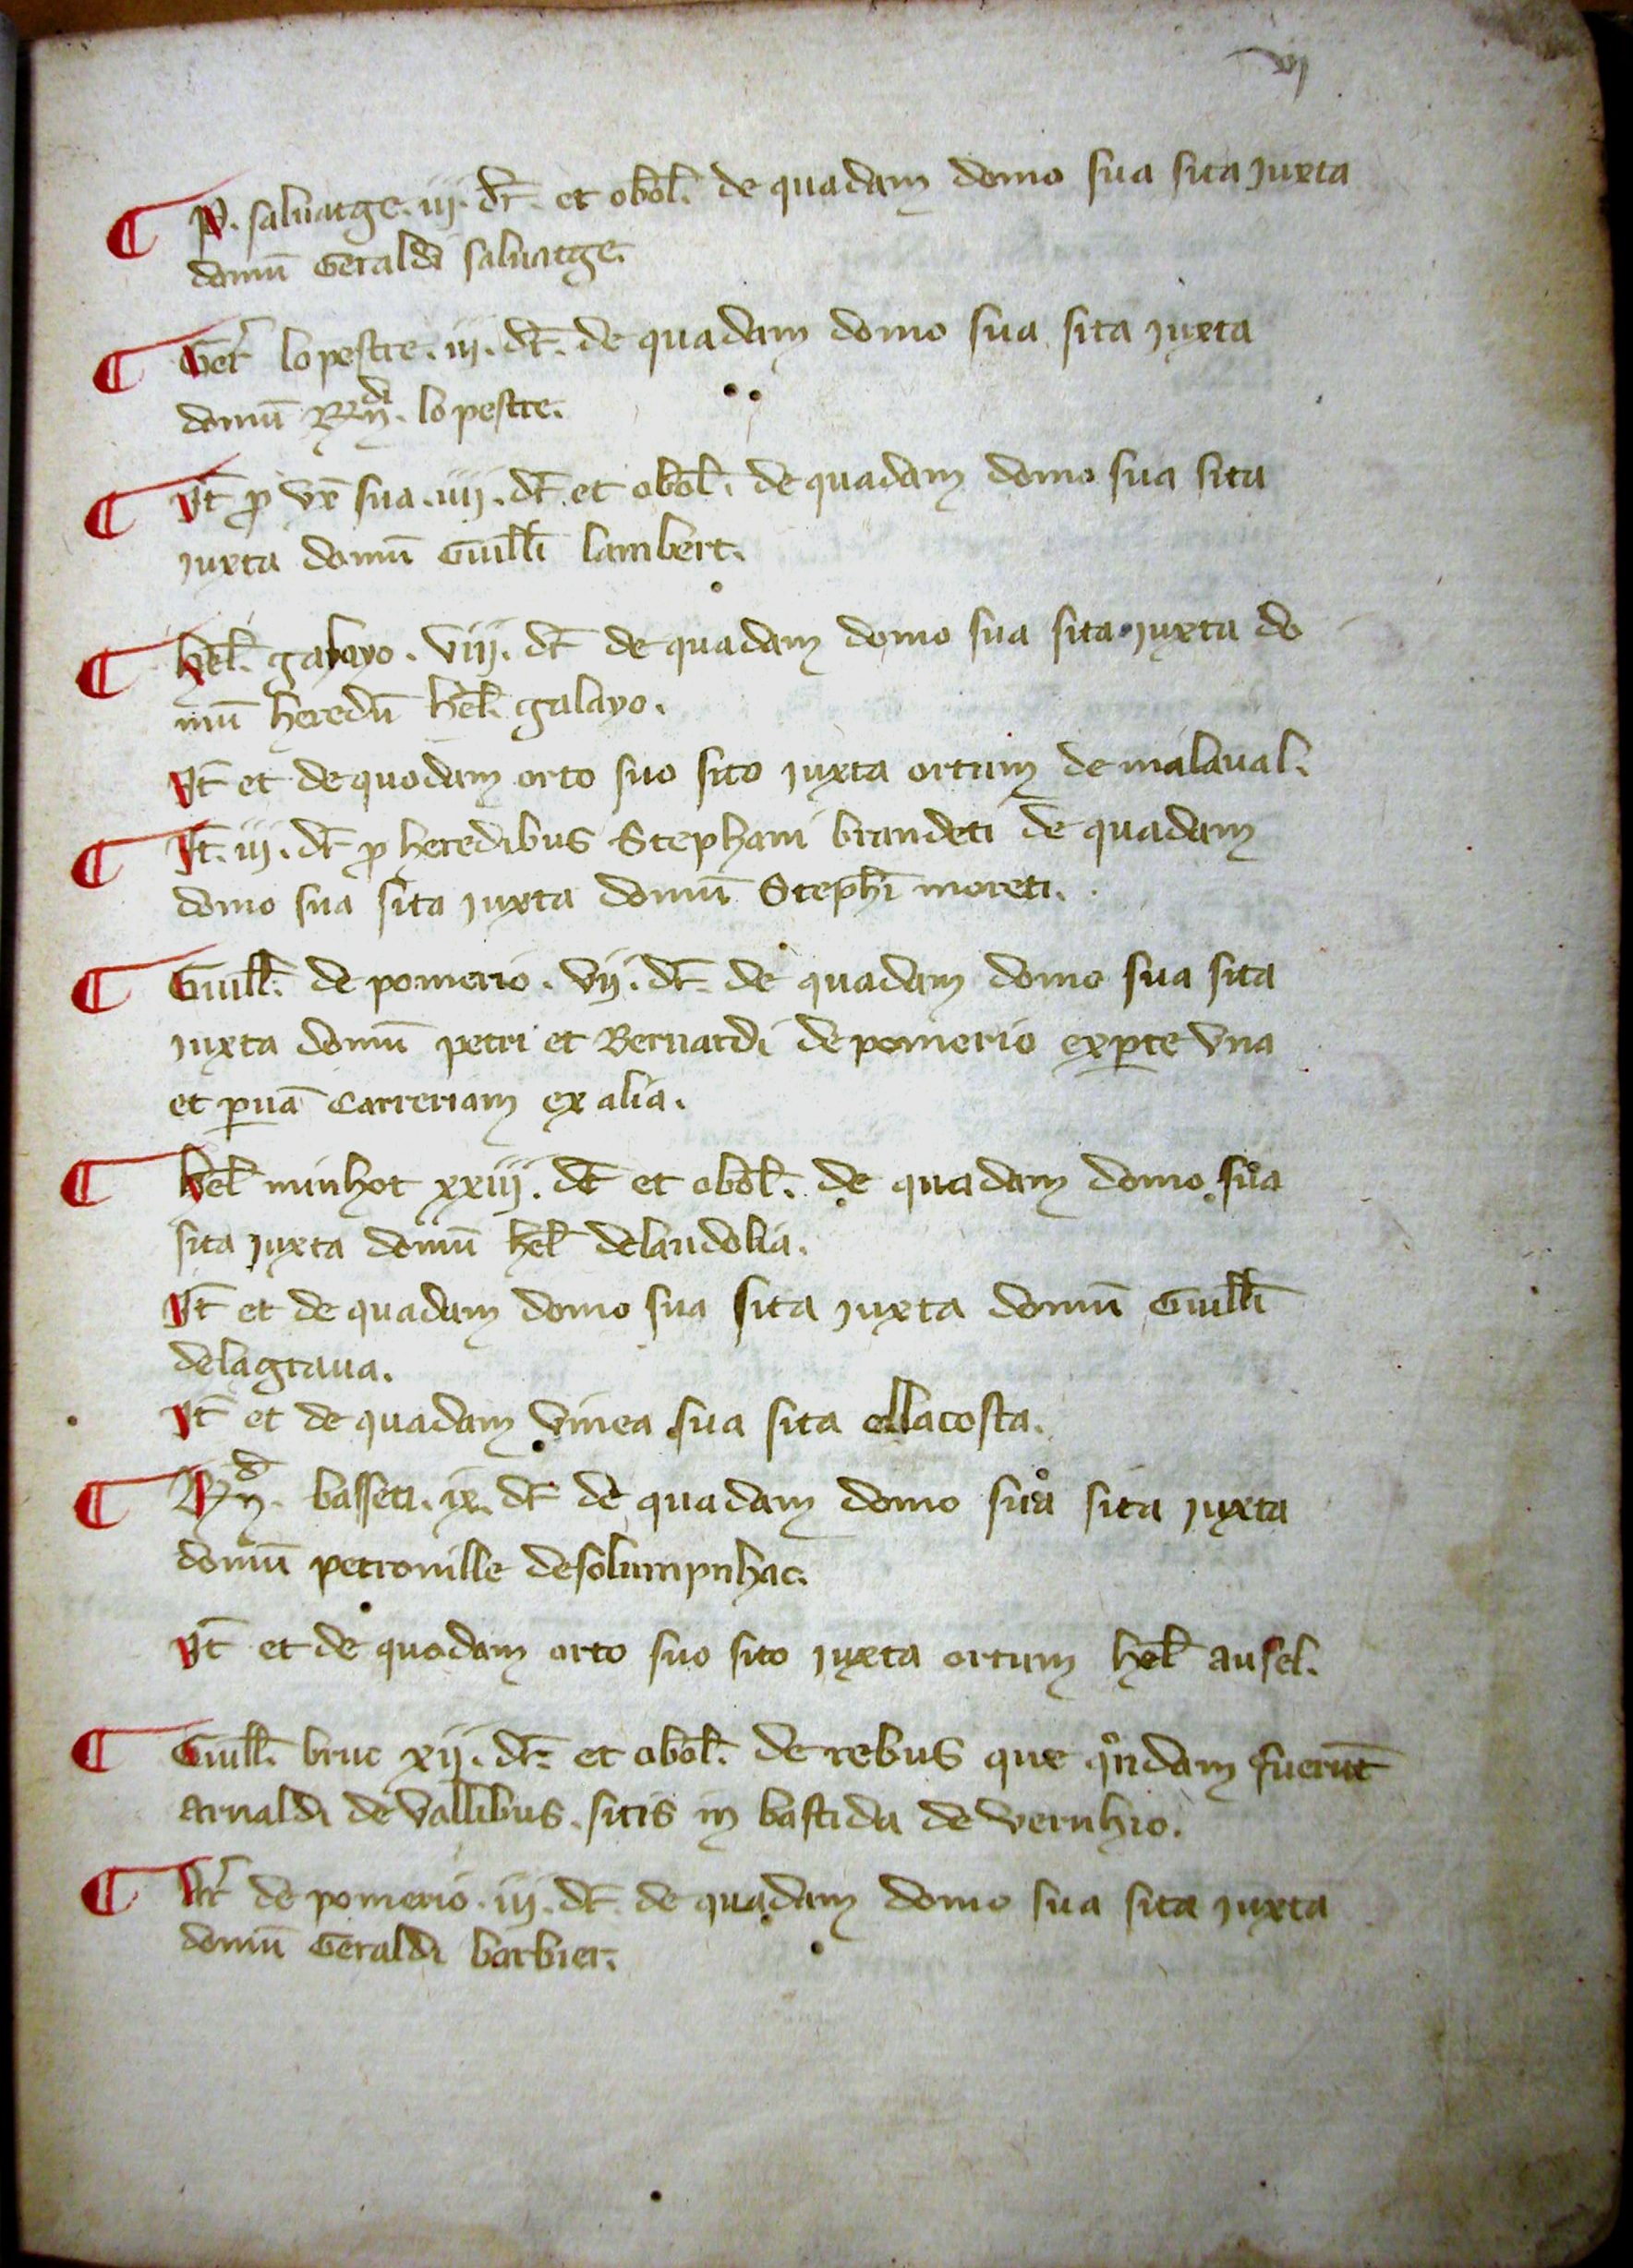 vj
¶ P. saluatge. iij. dr̄. et obol̄. de quadam domo sua sita juxta
domū Geraldi saluatge.
¶ Ger̄ lo pestre. iij. dr̄. de quadam domo sua sita juxta
domū R̄ydi. lo pestre.
¶ It̄ ꝓ vx̄ sua. iiij. dr̄. et obol̄. de quadam domo sua sita
juxta domū Guill̄i lambert.
¶ hel̄. galayo. viij. dr̄ de quadam domo sua sita juxta do
mū heredū hel̄. galayo.
It̄ et de quodam orto suo sito juxta ortum de malaual.
¶ It̄. iij. dr̄ ꝓ heredibus Stephani brandeti de quadam
domo sua sita juxta domū Steph̄i moreti.
¶ Guill̄. de pomerio. vij. dr̄. de quadam domo sua sita
juxta domū petri et Bernardi de pomerio ex ꝑte vna
et ꝑuā carreriam ex alia.
¶ hel̄ minhot xxiij. dr̄ et obol̄. de quadam domo sua
sita juxta domū hel̄ delandolia.
It̄ et de quadam domo sua sita juxta domū Guill̄i
delagraua.
It̄ et de quadam vinea sua sita ellacosta.
¶ Ryd. basseti. ix. dr̄ de quadam domo sua sita juxta
domū petronille desolumpnhac.
It̄ et de quodam orto suo sito juxta ortum hel̄ ausel.
¶ Guill̄. bruc xij. dr̄. et obol̄. de rebus que qͦndam fuerūt
arnaldi de vallibus. sitis in bastida de vernhio.
¶ Ar̄ de pomerio. iij. dr̄. de quadam domo sua sita juxta
domū Geraldi barbier.